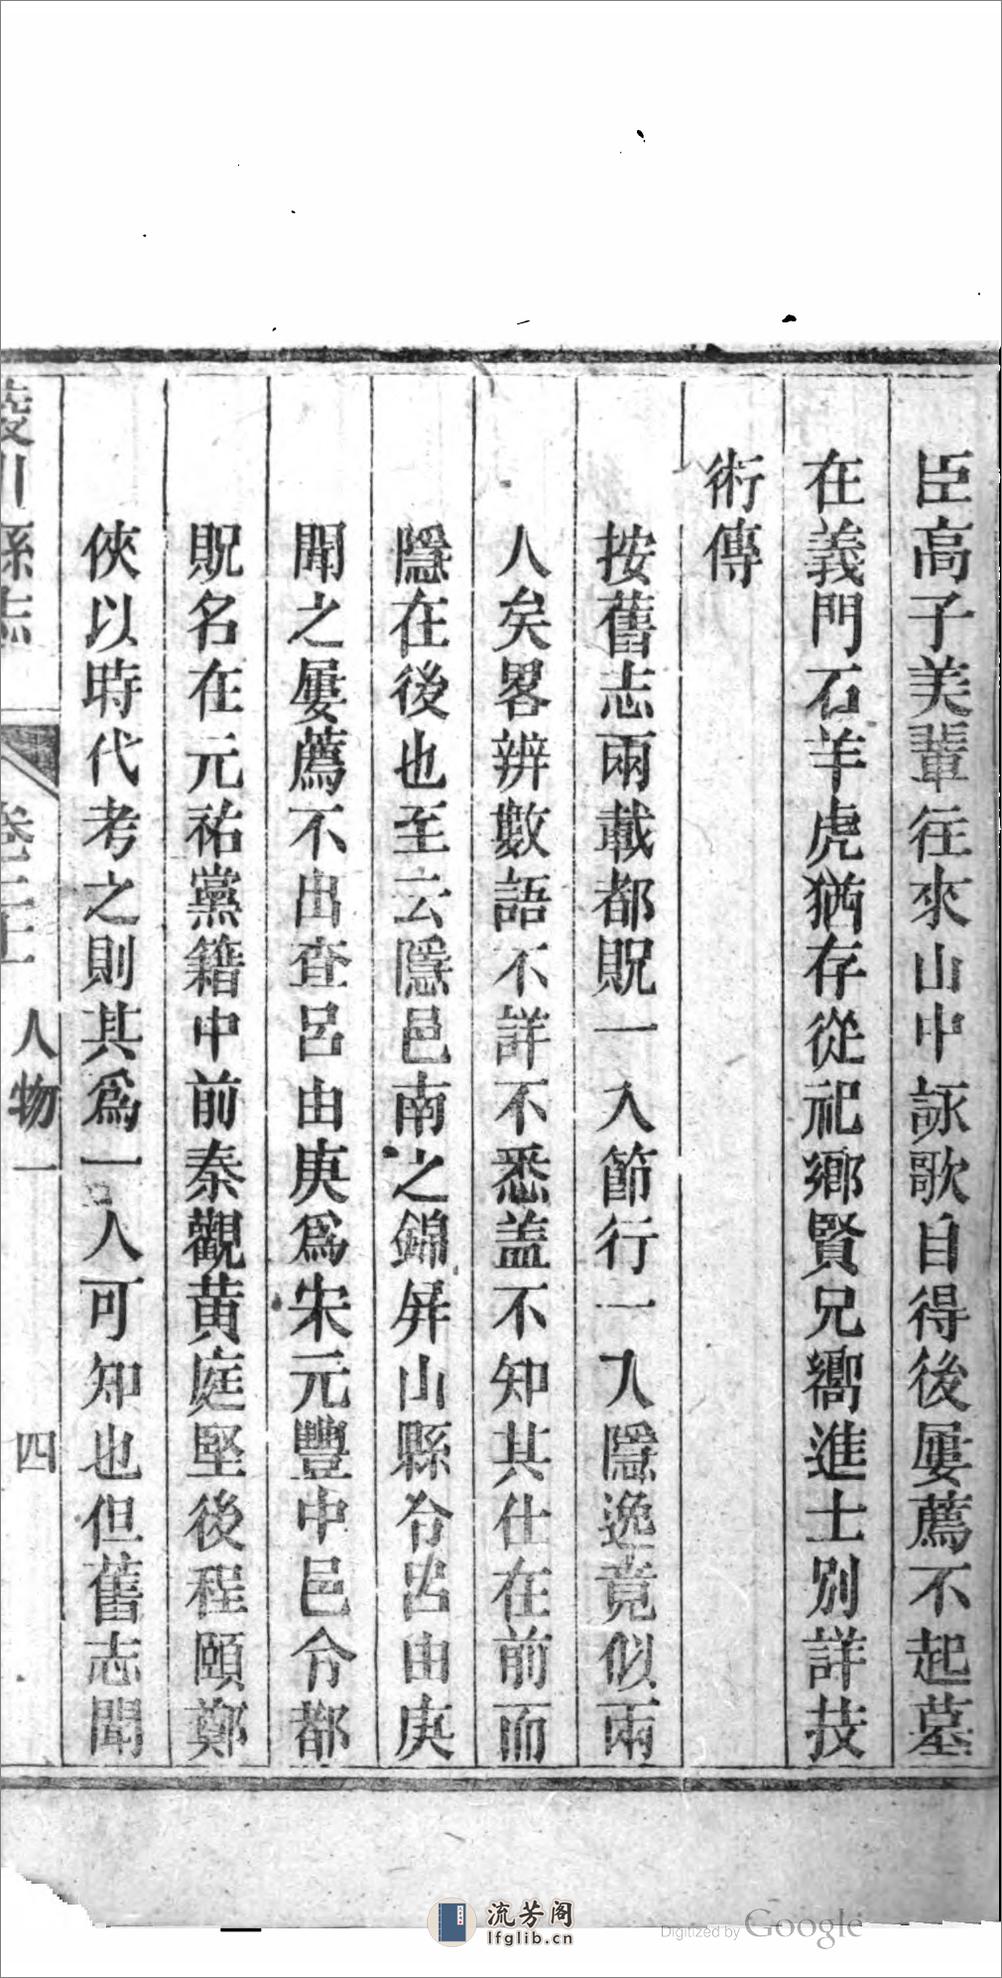 臣高子美輩往來山中詠歌自得後屢薦不起墓
在義門石羊虎猶存從祀鄉賢兄嚮進士別詳技
術傳
按舊志兩載都貺一入節行一入隱逸竟似兩
人矣畧辨數語不詳不悉盖不知其仕在前而
隱在後也至云隱邑南之錦屏山縣令呂由庚
聞之屢薦不出查呂由庚爲宋元豐中邑令都
貺名在元祐黨籍中前秦觀黃庭堅後程頤鄭
俠以時代考之則其爲一人可知也但舊志聞
陵川縣志
人物一
四
流芳阁
lfglib.cn
Digitized by Google